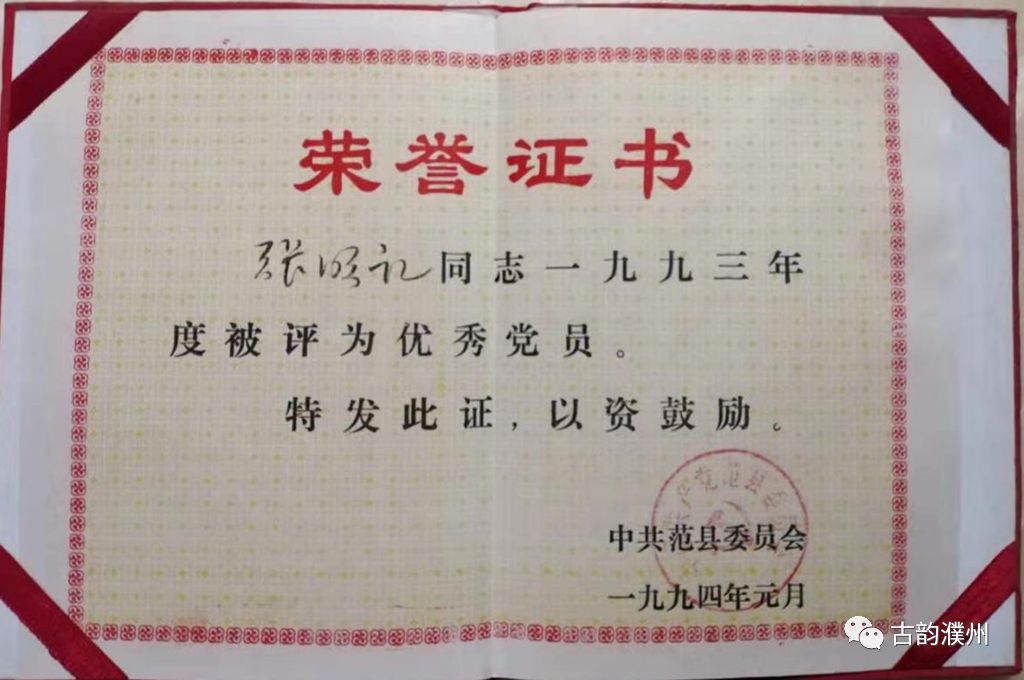 荣誉证书
张明礼同志一九九三年
度被评为优秀党员。
特发此证,以资鼓励。
中共范县委员会
一九九四年元月
古韵濮州